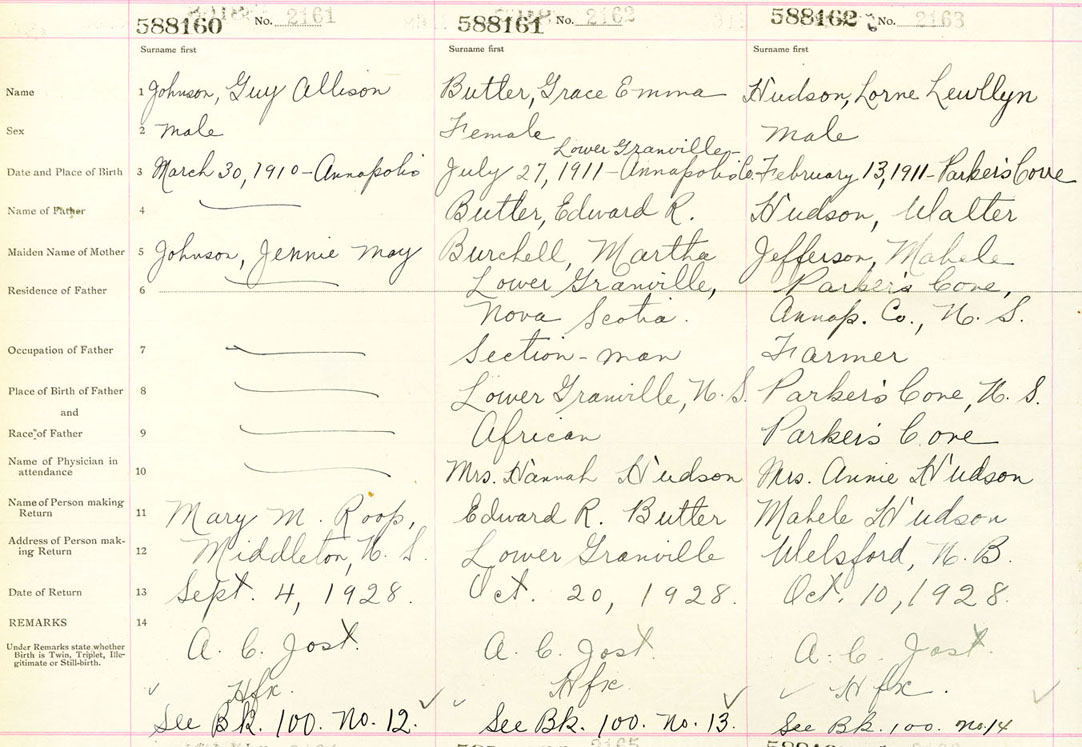 588160 No. 2161 588161 No. 2162 588162 No. 2163
Surname first Surname first Surname first
Name 1 Johnson, Guy Allison Butler, Grace Emma Hudson, Lorne Lewllyn
Sex 2 male Female male
Lower Granville-
Date and Place of Birth 3 March 30, 1910-Annapolis July 27, 1911-Annapolis Co. February 13, 1911-Parker's Cove
Name of Father 4 Butler, Edward R. Hudson, Walter
Maiden Name of Mother 5 Johnson, Jennie May Burchell, Martha Jefferson, Mahele
Residence of Father 6 Lower Granville, Parker's Cove,
Nova Scotia. Annap. Co., N. S.
Occupation of Father 7 Section-man Farmer
Place of Birth of Father 8 Lower Granville, N. S. Parker's Cove, N. S.
and
Race of Father 9 African Parker's Cove
Name of Physician in
attendance 10 Mrs. Hannah Hudson Mrs. Annie Hudson
Name of Person making
Return 11 Mary M. Roop, Edward R. Butler Mahele Hudson
Address of Person mak-
ing Return 12 Middleton, N. S. Lower Granville Welsford, N. B.
Date of Return 13 Sept. 4, 1928. Oct. 20, 1928. Oct. 10, 1928.
REMARKS 14
Under Remarks state whether
Birth is Twin, Triplet, Ille-
gitimate or Still-birth.
A. C. Jost. A. C. Jost. A. C. Jost.
Hfx. Hfx. Hfx.
See Bk. 100. No. 12. See Bk. 100. No. 13. See Bk. 100. No. 14